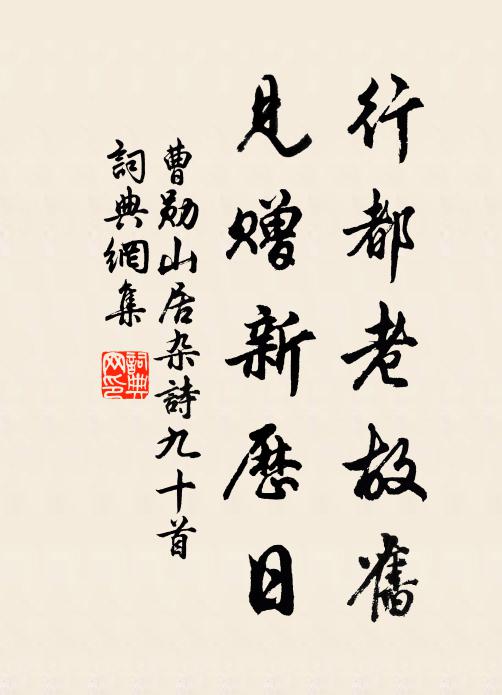 行都老故舊
見贈新歷日
曹勛山居杂詩九十首
詞典網集
詞典網印